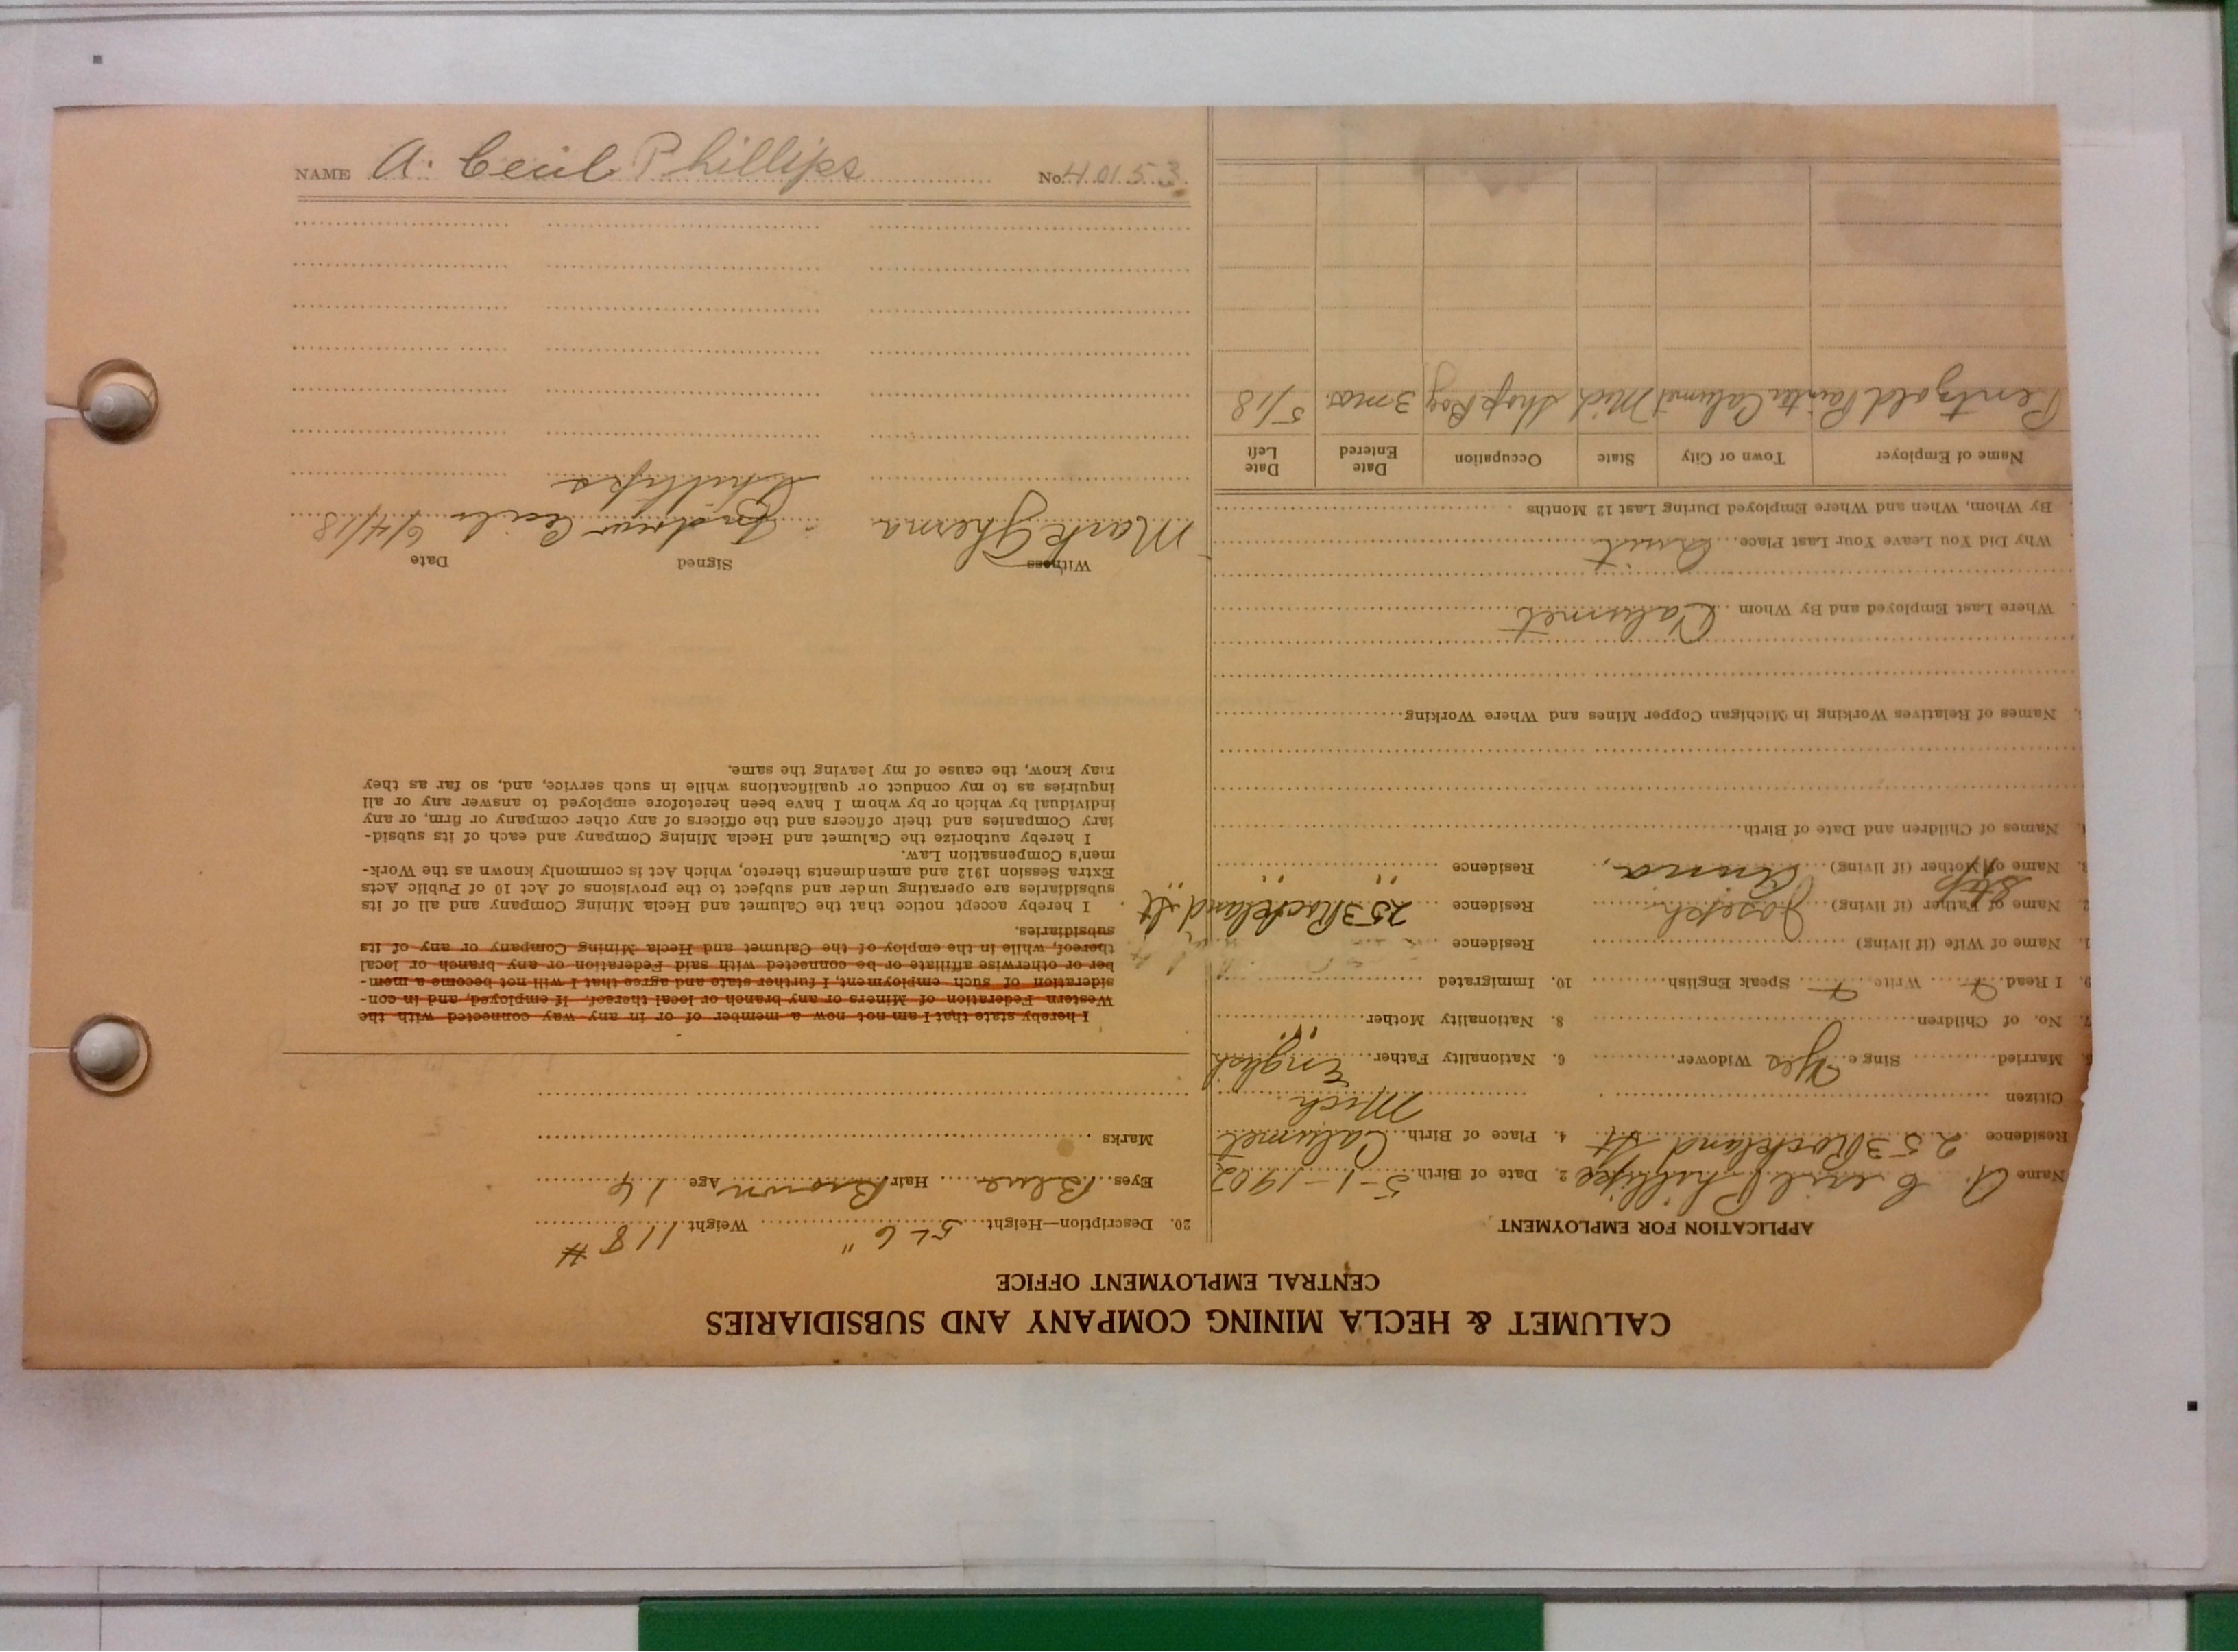 CALUMET & HECLA MINING COMPANY AND SUBSIDIARIES
CENTRAL EMPLOYMENT OFFICE
APPLICATION FOR EMPLOYMENT
Name A. Cecil Phillips 2. Date of Birth 5-1-1902
Residence 253 Rockland St 4. Place of Birth Calumet
Mich
Citizen
Married Single Yes Widower 6. Nationality Father English
7. No. of Children 8. Nationality Mother " "
9. I Read Write Speak English 10. Immigrated
1. Name of Wife (if living) Residence
2. Name of Father (if living) Joseph Residence 253 Rockland St
Step
3. Name of Mother (if living) Anna Residence " " "
4. Names of Children and Date of Birth
Names of Relatives Working in Michigan Copper Mines and Where Working
Where Last Employed and By Whom Calumet
Why Did You Leave Your Last Place Quit
By Whom, When and Where Employed During Last 12 Months
Name of Employer Town or City State Occupation Date Entered Date Left
Calumet Mich Shop Boy 3 mos. 5/18
20. Description—Height 5-6" Weight 118 #
Eyes Blue Hair Brown Age 16
Marks
I hereby state that I am not now a member of or in any way connected with the
Western Federation of Miners or any branch or local thereof. If employed, and in con-
sideration of such employment, I further state and agree that I will not become a mem-
ber or otherwise affiliate or be connected with said Federation or any branch or local
thereof, while in the employ of the Calumet and Hecla Mining Company or any of its
subsidiaries.
I hereby accept notice that the Calumet and Hecla Mining Company and all of its
subsidiaries are operating under and subject to the provisions of Act 10 of Public Acts
Extra Session 1912 and amendments thereto, which Act is commonly known as the Work-
men's Compensation Law.
I hereby authorize the Calumet and Hecla Mining Company and each of its subsid-
iary Companies and their officers and the officers of any other company or firm, or any
individual by which or by whom I have been heretofore employed to answer any or all
inquiries as to my conduct or qualifications while in such service, and, so far as they
may know, the cause of my leaving the same.
Witness Signed Date
Mark Andrew Cecil 6/4/18
Phillips
NAME A. Cecil Phillips No. 40153